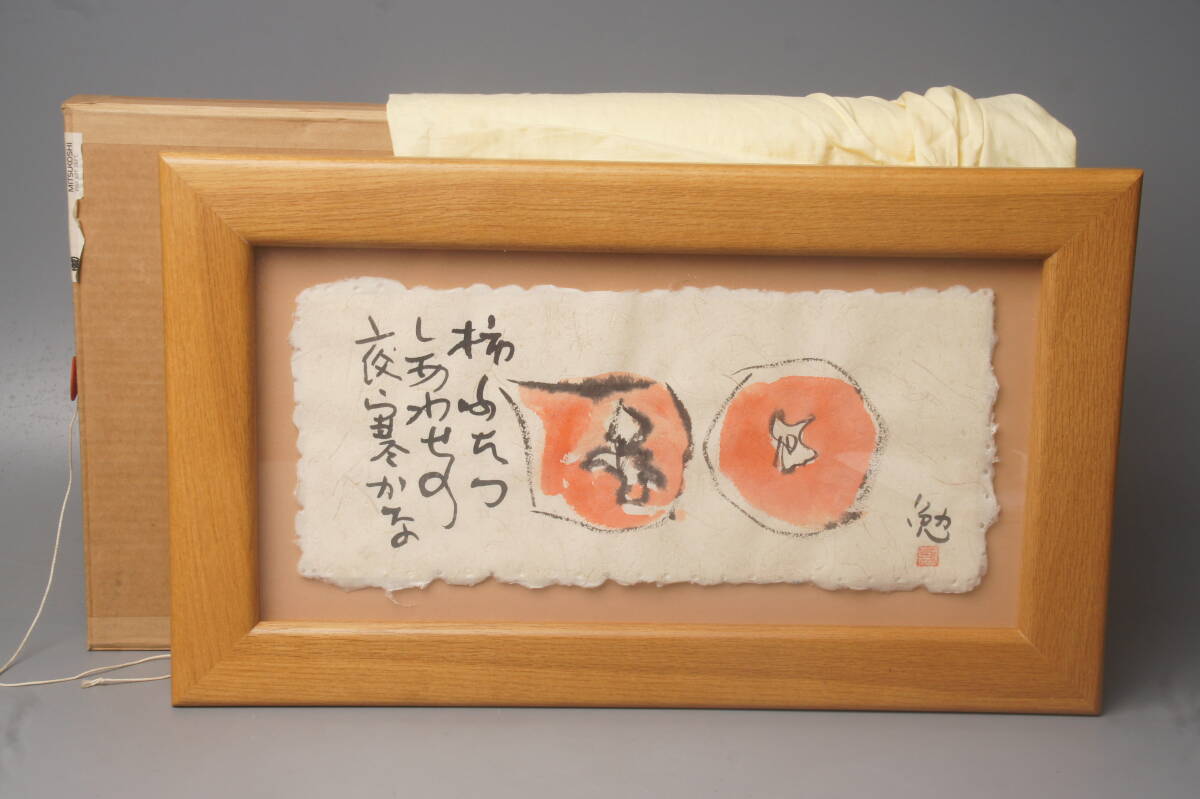 柿ふたつ
しあわせの
夜寒かな
勉
MITSUKOSHI